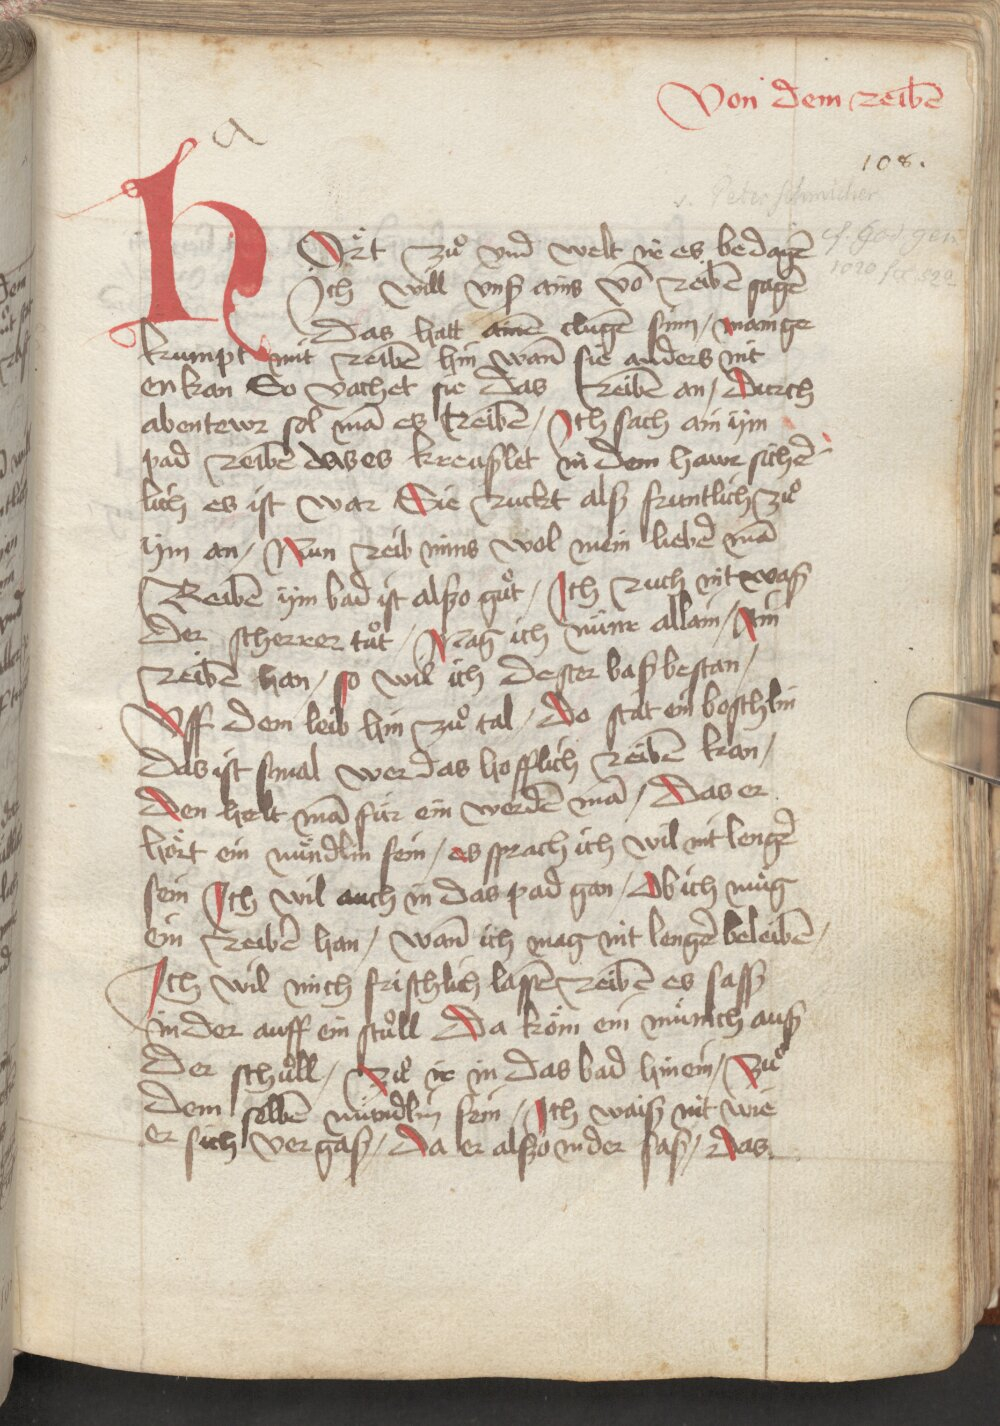 Von dem reibē
a
108.
v. Peter Schmieher
cf. ger
HOrt zuͦ vnd welt ir es bedagē
Ich will vnß ains vō reibē sagē
das hatt ainē clugē sinn / mainge
krumpt mit reibē hin wañ sie anders nit
en kan So vachet sie das reibē an / durch
abentewr sol mā es treibē / Ich sach ain ijm
pad reibē das es kreußlet in dem hawr sichē
lich es ist war Sie ruckt alß fruntlich zuͦ
ijm an / Nun reib mirs wol mein liebē mā
Reibē ijm bad ist alßo guͦt / Ich ruch nit waß
der scherrer tuͦt / Mag ich nünr allain / Ain
reibē han / so wil ich dester baß bestan /
Vff dem leib hin zuͦ tal / Do stat ein boschlin
das ist smal wer das hofflich reibē kan /
Den helt mā für ein werdē mā / Das er
hört ein mündlin fein / es sprach ich wil nit lengē
sein Ich wil auch in das pad gan / Ob ich müg
ein reibē han / wañ ich mag nit lengē beleibē /
Ich wil mich frischlich lassē reibē es saß
in der auff ein stuͦll Da köm ein münich auß
der schuͦll / Zuͦ ir in das bad hinein / Zuͦ
dem selbē mündlin fein / Ich waiß nit wie
er sich vergaß / Da er alßo inder saß / Das